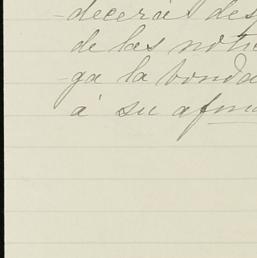 -decerá des
de las noti
-ga la bonda
á su afmo